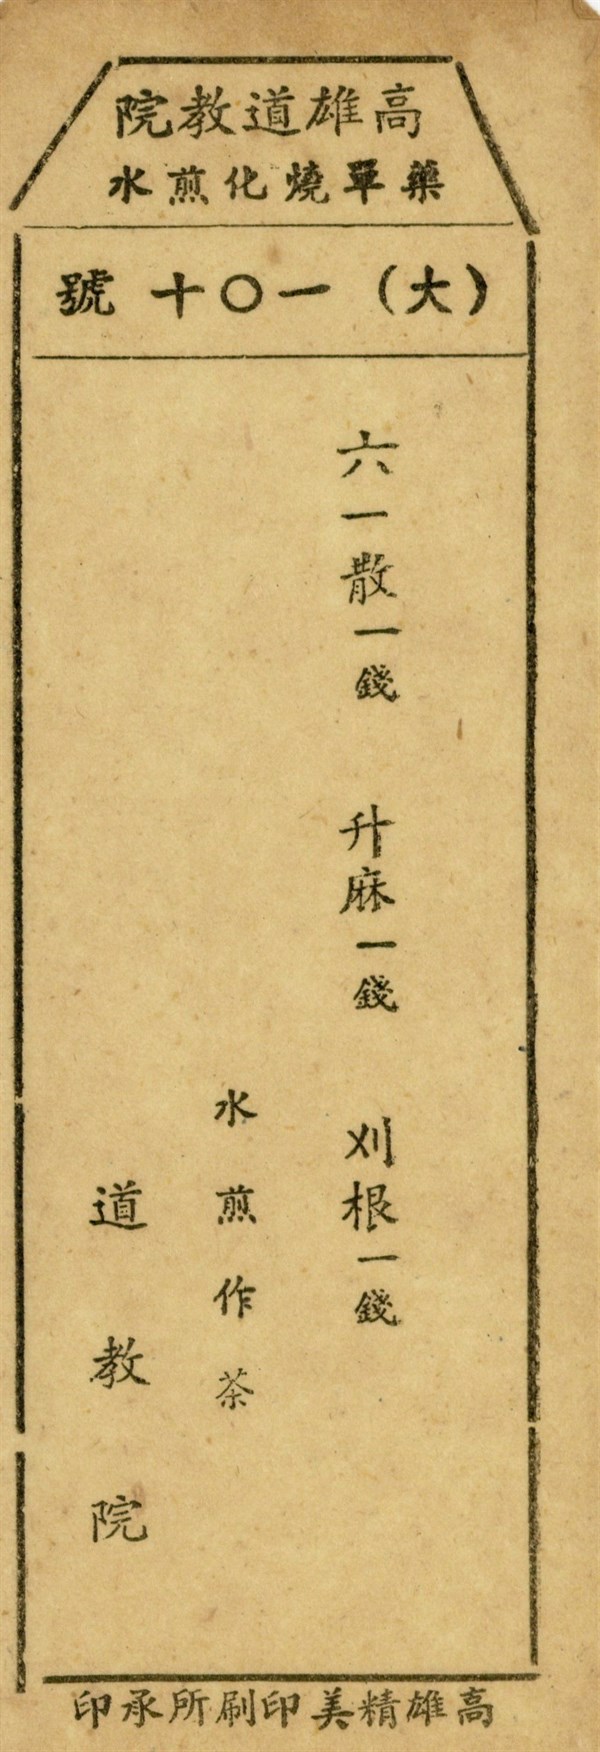 高雄道教院
藥單燒化煎水
（大）一〇十號
六一散一錢 升麻一錢 刈根一錢
水煎作茶
道教院
高雄精美印刷所承印